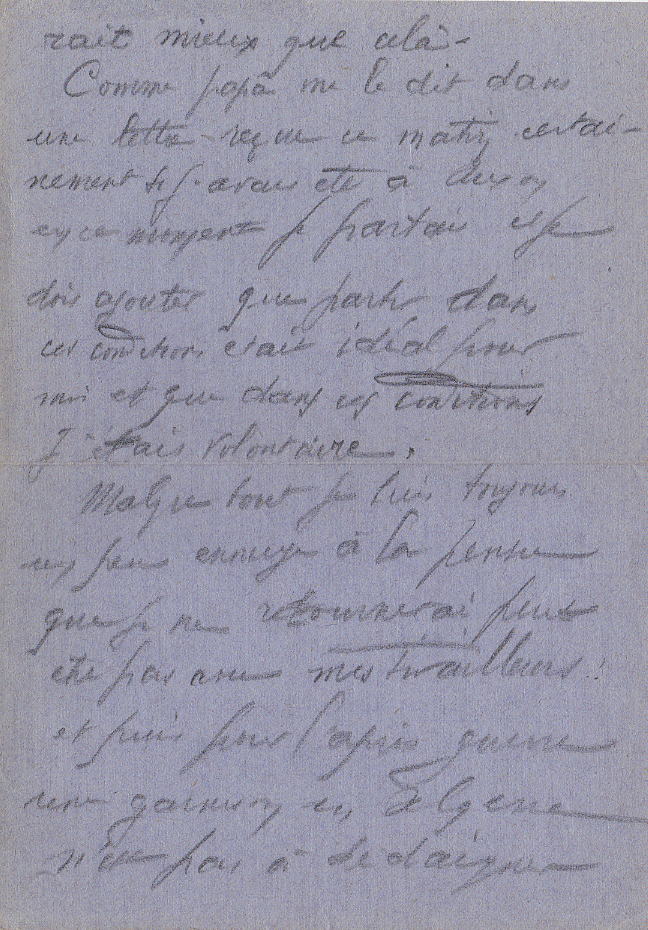 rait mieux que cela -
Comme papa me le dit dans
une lettre reçue ce matin certai-
nement si j'avais été à
en ce moment je partais et je
dois ajouter que partir dans
ces conditions était idéal pour
moi et que dans ces conditions
J'étais volontaire.
Malgré tout je suis toujours
un peu ennuyé à la pensée
que je ne retournerai peut
être pas avec mes tirailleurs !
et puis pour l'après guerre
une garnison en Algérie
n'est pas à dédaigner